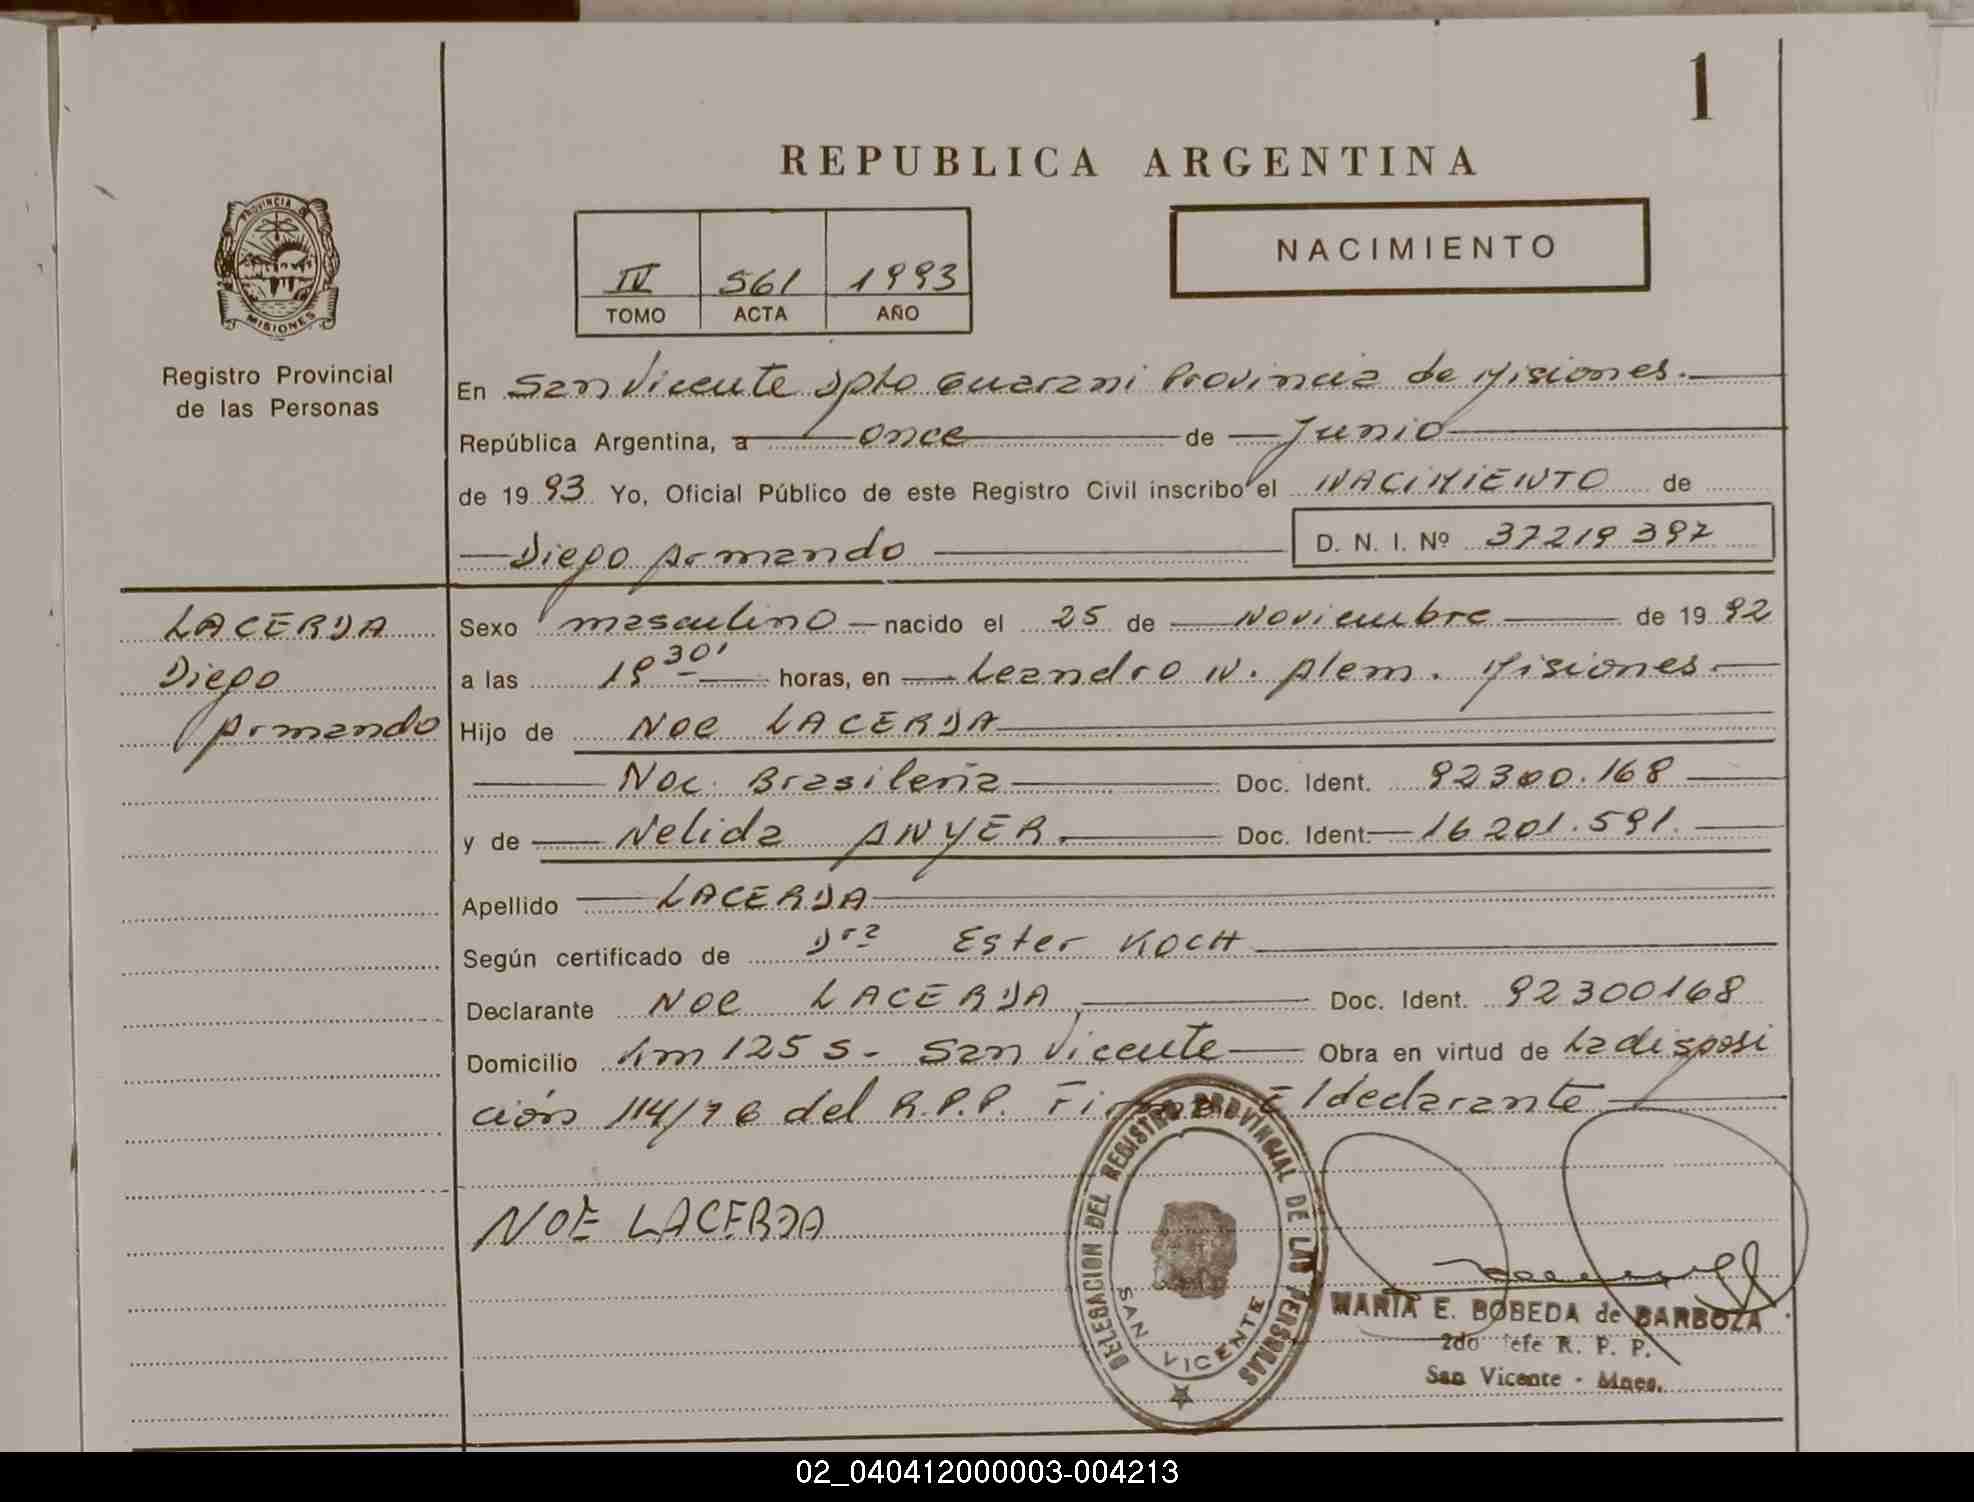 1
REPUBLICA ARGENTINA
PROVINCIA DE
MISIONES
Registro Provincial
de las Personas
IV 561 1993
TOMO ACTA AÑO
NACIMIENTO
En San Vicente Dpto Guarani Provincia de Misiones.
República Argentina, a once de Junio
de 1993 Yo, Oficial Público de este Registro Civil inscribo el NACIMIENTO de
Diego Armando D. N. I. Nº 37219397
LACERDA
Diego
Armando
Sexo masculino nacido el 25 de Noviembre de 1992
a las 19 30' horas, en Leandro N. Alem. Misiones
Hijo de Noe LACERDA
Nac. Brasileña Doc. Ident. 92300.168
y de Nelida ANYER. Doc. Ident. 16201.591.
Apellido LACERDA
Según certificado de Dra Ester KOCH
Declarante Noe LACERDA Doc. Ident. 92300168
Domicilio Km 125 S- San Vicente Obra en virtud de La disposi
ción 114/76 del R.P.P. Firma El declarante
NOE LACERDA
DELEGACION DEL REGISTRO PROVINCIAL DE LAS PERSONAS
SAN VICENTE
MARIA E. BOBEDA de BARBOZA
2do Jefe R. P. P.
San Vicente - Mnes.
02_040412000003-004213